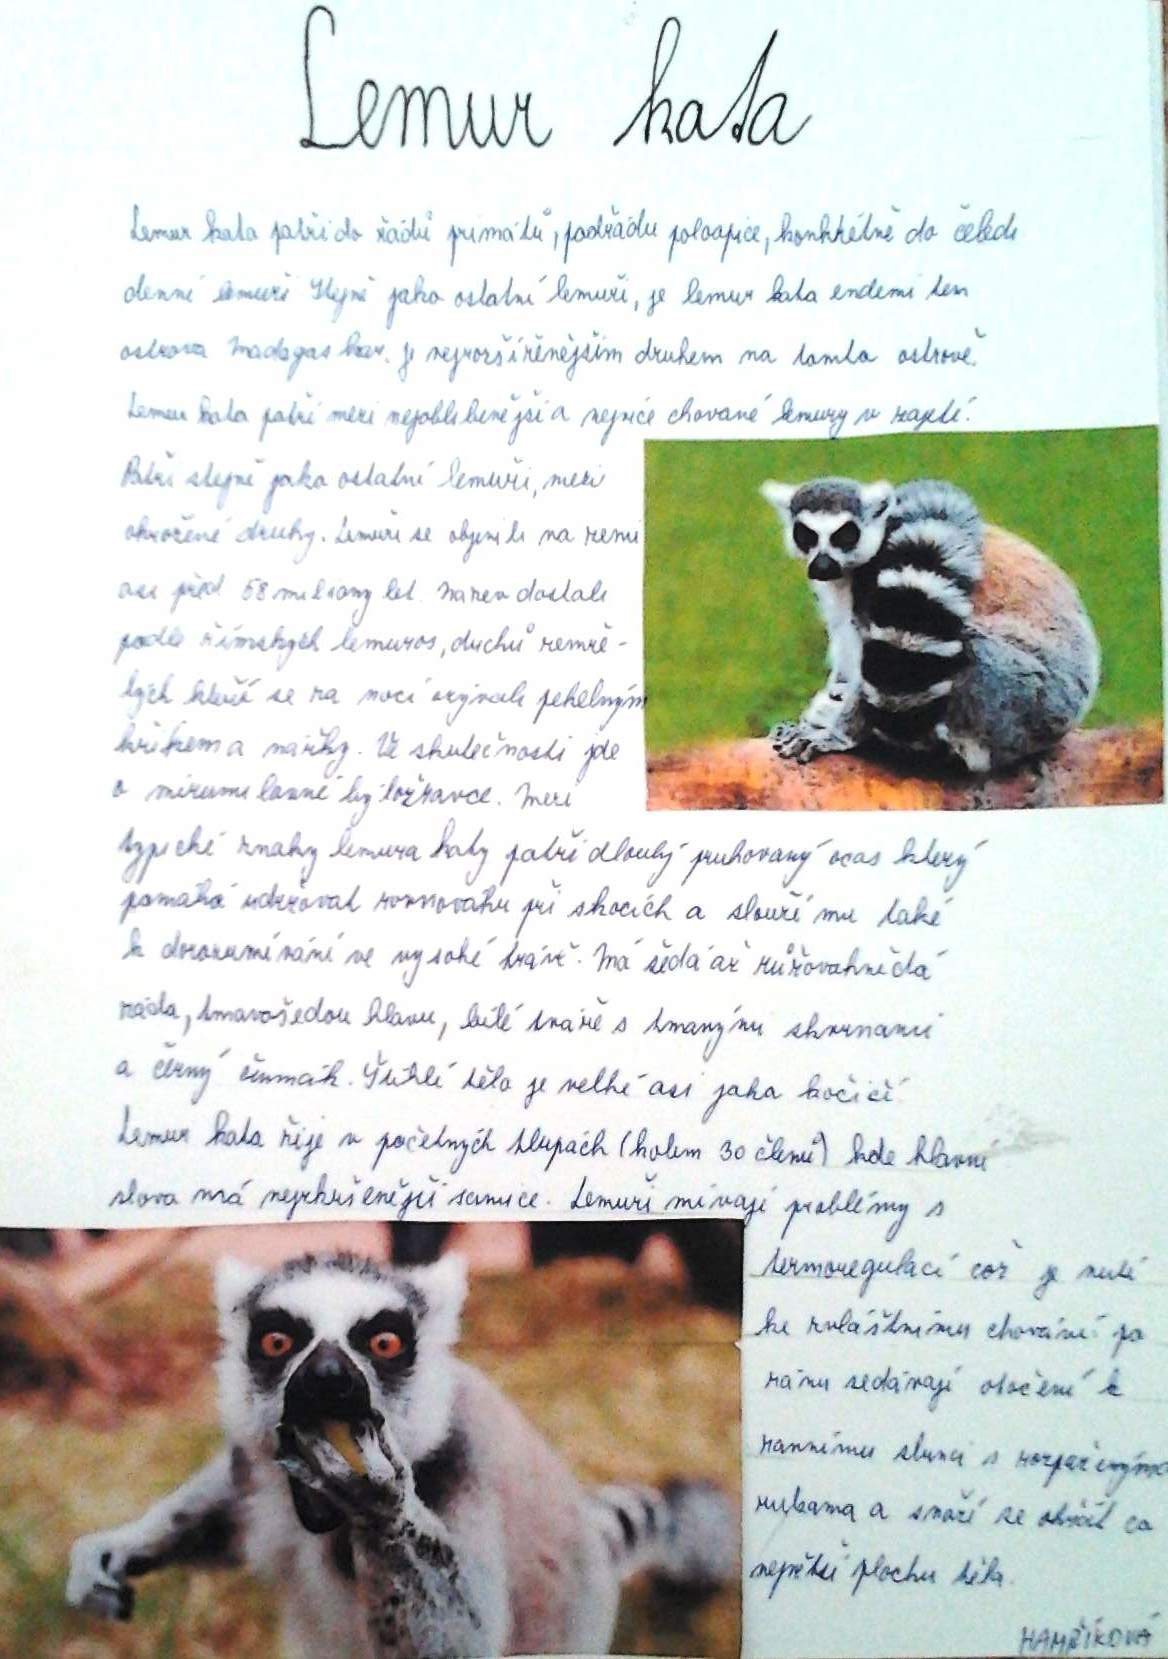 Lemur kata
Lemur kata patří do řádů primátů, podřádu poloopice, konkrétně do čeledi
denní lemuři Stejně jako ostatní lemuři, je lemur kata endemi tem
ostrova Madagaskar. Je nejrozšířenějším druhem na tomto ostrově.
Lemur kata patří mezi nejoblíbenější a nejvíce chované lemury v zajetí.
Patří stejně jako ostatní lemuři, mezi
ohrožené druhy. Lemuři se objevili na zemi
asi před 58 miliony let. Název dostali
podle římských lemuros, duchů zemře-
lých kteří se za noci ozývali pekelným
křikem a nářky. Ve skutečnosti jde
o mírumilovné býložravce. Mezi
typické znaky lemura katy patří dlouhý pruhovaný ocas který
pomáhá udržovat rovnováhu při skocích a slouží mu také
k dorozumívání ve vysoké trávě. Má šedá až růžovohnědá
záda, tmavošedou hlavu, bílé tváře s tmavými skvrnami
a černý čumák. Štíhlé tělo je velké asi jako kočičí.
Lemur kata žije v početných tlupách (kolem 30 členů) kde hlavní
slovo má nejzkušenější samice. Lemuři mívají problémy s
termoregulací což je nutí
ke zvláštnímu chování: po
ránu sedávají otočení k
rannímu slunci s rozpaženýma
rukama a snaží se ohřát co
největší plochu těla.
HAMŘÍKOVÁ